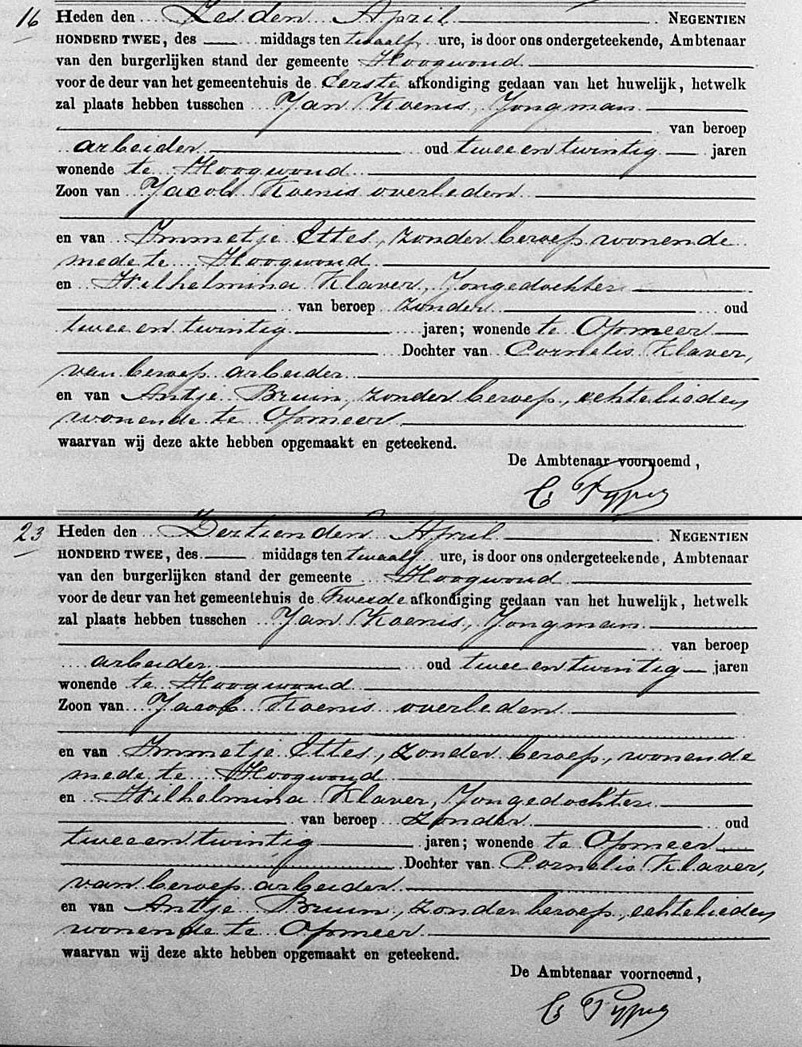 16 Heden den Zesden April NEGENTIEN
HONDERD TWEE, des middags ten twaalf ure, is door ons ondergeteekende, Ambtenaar
van den burgerlijken stand der gemeente Hoogwoud
voor de deur van het gemeentehuis de Eerste afkondiging gedaan van het huwelijk, hetwelk
zal plaats hebben tusschen Jan Koenis, Jongman
van beroep
arbeider oud twee en twintig jaren
wonende te Hoogwoud
Zoon van Jacob Koenis overleden
en van Immetje Ettes, zonder beroep wonende
mede te Hoogwoud
en Wilhelmina Klaver, Jongedochter
van beroep zonder oud
twee en twintig jaren; wonende te Opmeer
Dochter van Cornelis Klaver,
van beroep arbeider
en van Antje Bruin, zonder beroep, echtelieden
wonende te Opmeer
waarvan wij deze akte hebben opgemaakt en geteekend.
De Ambtenaar voornoemd,
23 Heden den Dertienden April NEGENTIEN
HONDERD TWEE, des middags ten twaalf ure, is door ons ondergeteekende, Ambtenaar
van den burgerlijken stand der gemeente Hoogwoud
voor de deur van het gemeentehuis de Tweede afkondiging gedaan van het huwelijk, hetwelk
zal plaats hebben tusschen Jan Koenis, Jongman
van beroep
arbeider oud twee en twintig jaren
wonende te Hoogwoud
Zoon van Jacob Koenis overleden
en van Immetje Ettes, zonder beroep, wonende
mede te Hoogwoud
en Wilhelmina Klaver, Jongedochter
van beroep zonder oud
twee en twintig jaren; wonende te Opmeer
Dochter van Cornelis Klaver,
van beroep arbeider
en van Antje Bruin, zonder beroep, echtelieden
wonende te Opmeer
waarvan wij deze akte hebben opgemaakt en geteekend.
De Ambtenaar voornoemd,